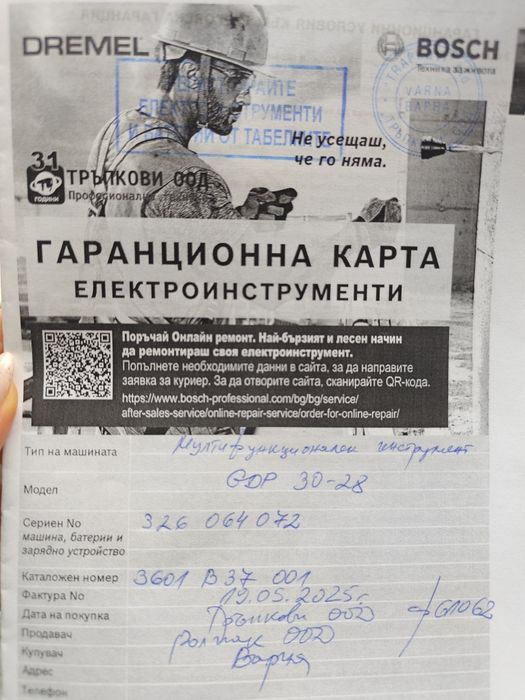 DREMEL
BOSCH
Техника за живота
VARNA
ВАРНА
ЕЛЕКТРОИНСТРУМЕНТИ
И БАТЕРИИ ОТ ТАБЕЛКИТЕ
Не усещаш,
че го няма.
31
ГОДИНИ
ТРЪПКОВИ ООД
Професионална техника
ГАРАНЦИОННА КАРТА
ЕЛЕКТРОИНСТРУМЕНТИ
Поръчай Онлайн ремонт. Най-бързият и лесен начин
да ремонтираш своя електроинструмент.
Попълнете необходимите данни в сайта, за да направите
заявка за куриер. За да отворите сайта, сканирайте QR-кода.
https://www.bosch-professional.com/bg/bg/service/
after-sales-service/online-repair-service/order-for-online-repair/
Тип на машината Мултифункционален инструмент
Модел GDP 30-28
Сериен No 326 064 072
машина, батерии и
зарядно устройство
Каталожен номер 3601 B37 001
Фактура No 19.05.2025г.
Дата на покупка Тръпкови ООД
Продавач ООД
Купувач Варна
Адрес
Телефон